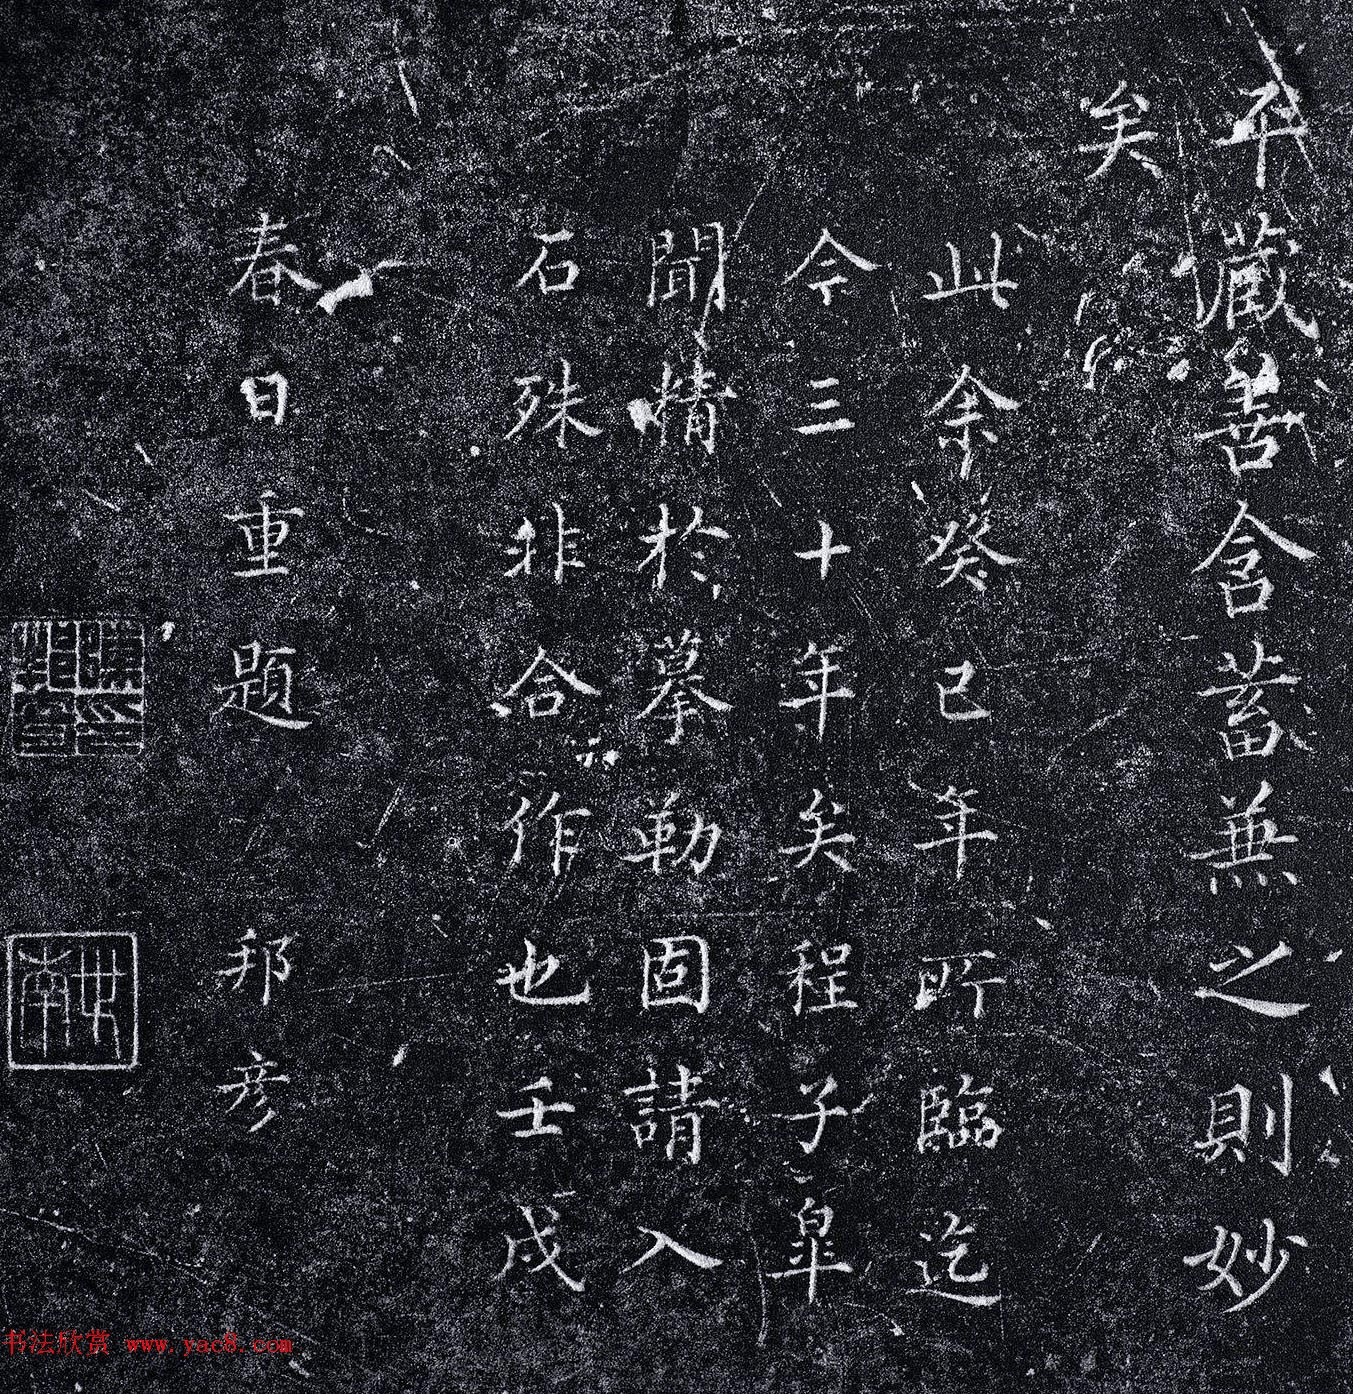 平藏善含蓄無之則妙
矣
此余癸巳年所臨迄
今三十年矣程子皐
聞精於摹勒固請入
石殊非合作也壬戌
春日重題 邦彦
书法欣赏 www.yac8.com